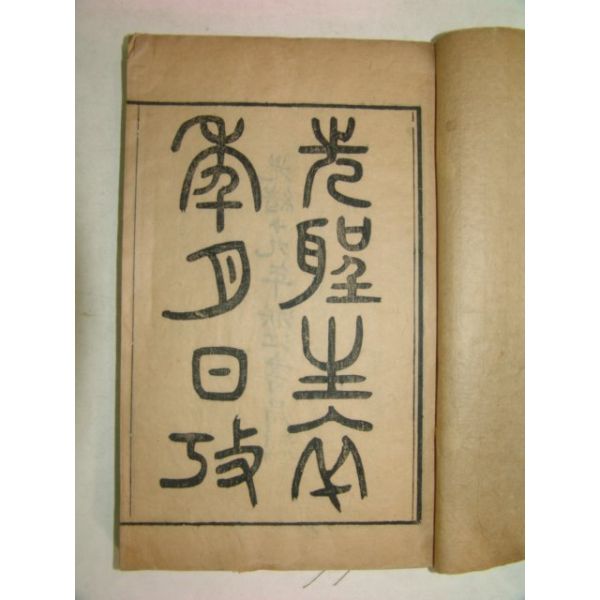 先聖生卒
年月日攷